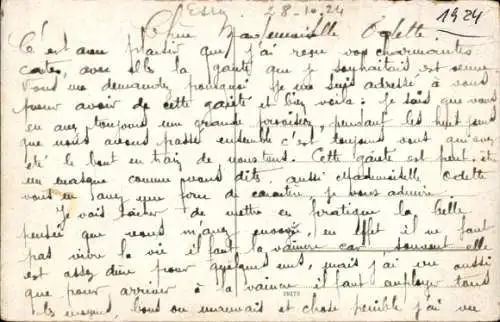 Essey 28-10-24
1924
Chère Mademoiselle Odette
C'est avec plaisir que j'ai reçu vos charmantes
cartes, avec elles la gaité que je souhaitais est venue
Vous me demandez pourquoi je me suis adressé à vous
pour avoir de cette gaieté et bien voila: Je sais que vous
en avez toujours une grande provision, pendant les huit jours
que nous avons passé ensemble c'est toujours vous qui avez
été le bout en train de nous tous. Cette gaité est peut-être
un masque comme vous dîtes, aussi Mademoiselle Odette
vous en avez une force de caractère je vous admire.
Je vais tâcher de mettre en pratique la belle
pensée que vous m'avez envoyé, en effet il ne faut
pas vivre la vie il faut la vaincre car souvent elle
est assez dure pour quelques uns, mais j'ai vu aussi
que pour arriver à la vaincre il faut employer tous
les moyens, bons ou mauvais et chose penible j'ai vu